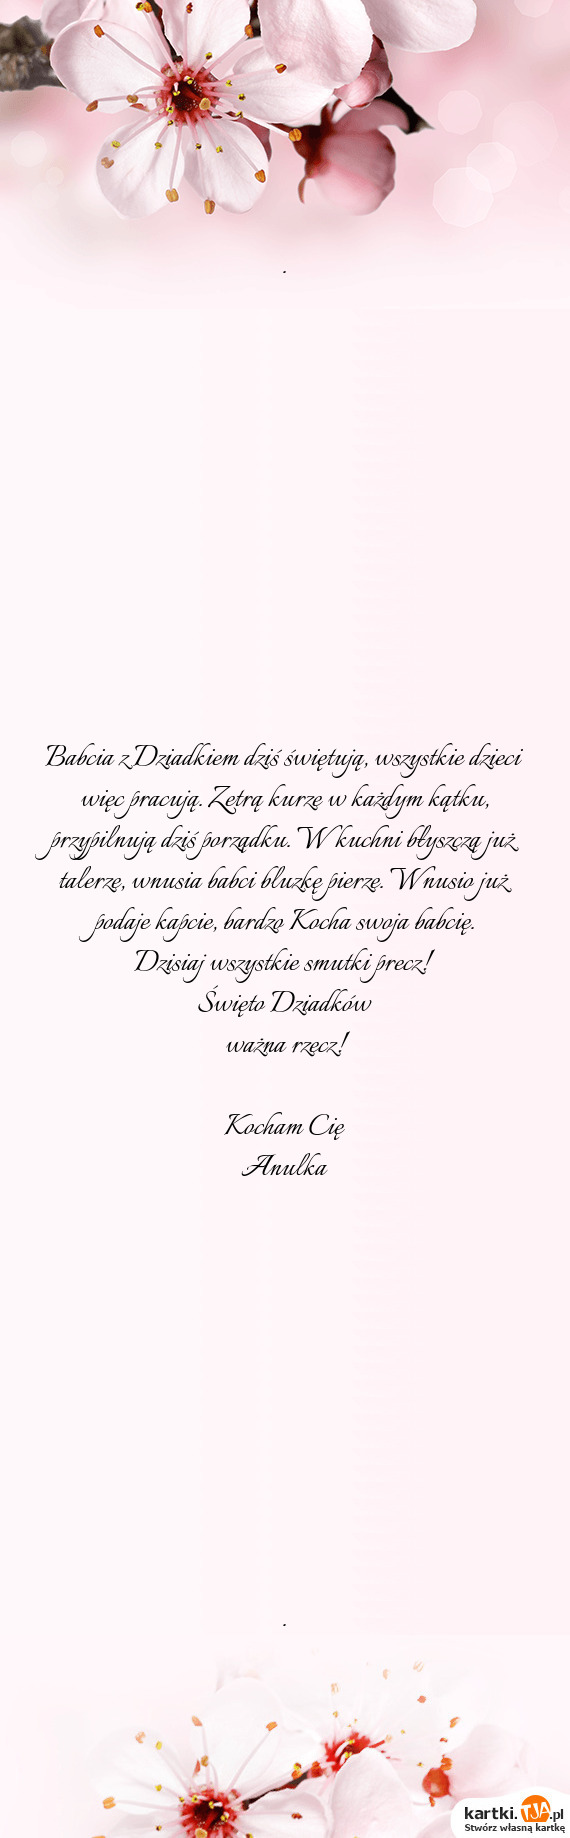 .
Babcia z Dziadkiem dziś świętują, wszystkie dzieci
więc pracują. Zetrą kurze w każdym kątku,
przypilnują dziś porządku. W kuchni błyszczą już
talerze, wnusia babci bluzkę pierze. Wnusio już
podaje kapcie, bardzo Kocha swoja babcię.
Dzisiaj wszystkie smutki precz!
Święto Dziadków
ważna rzecz!
Kocham Cię
Anulka
.
kartki.TJA.pl
Stwórz własną kartkę